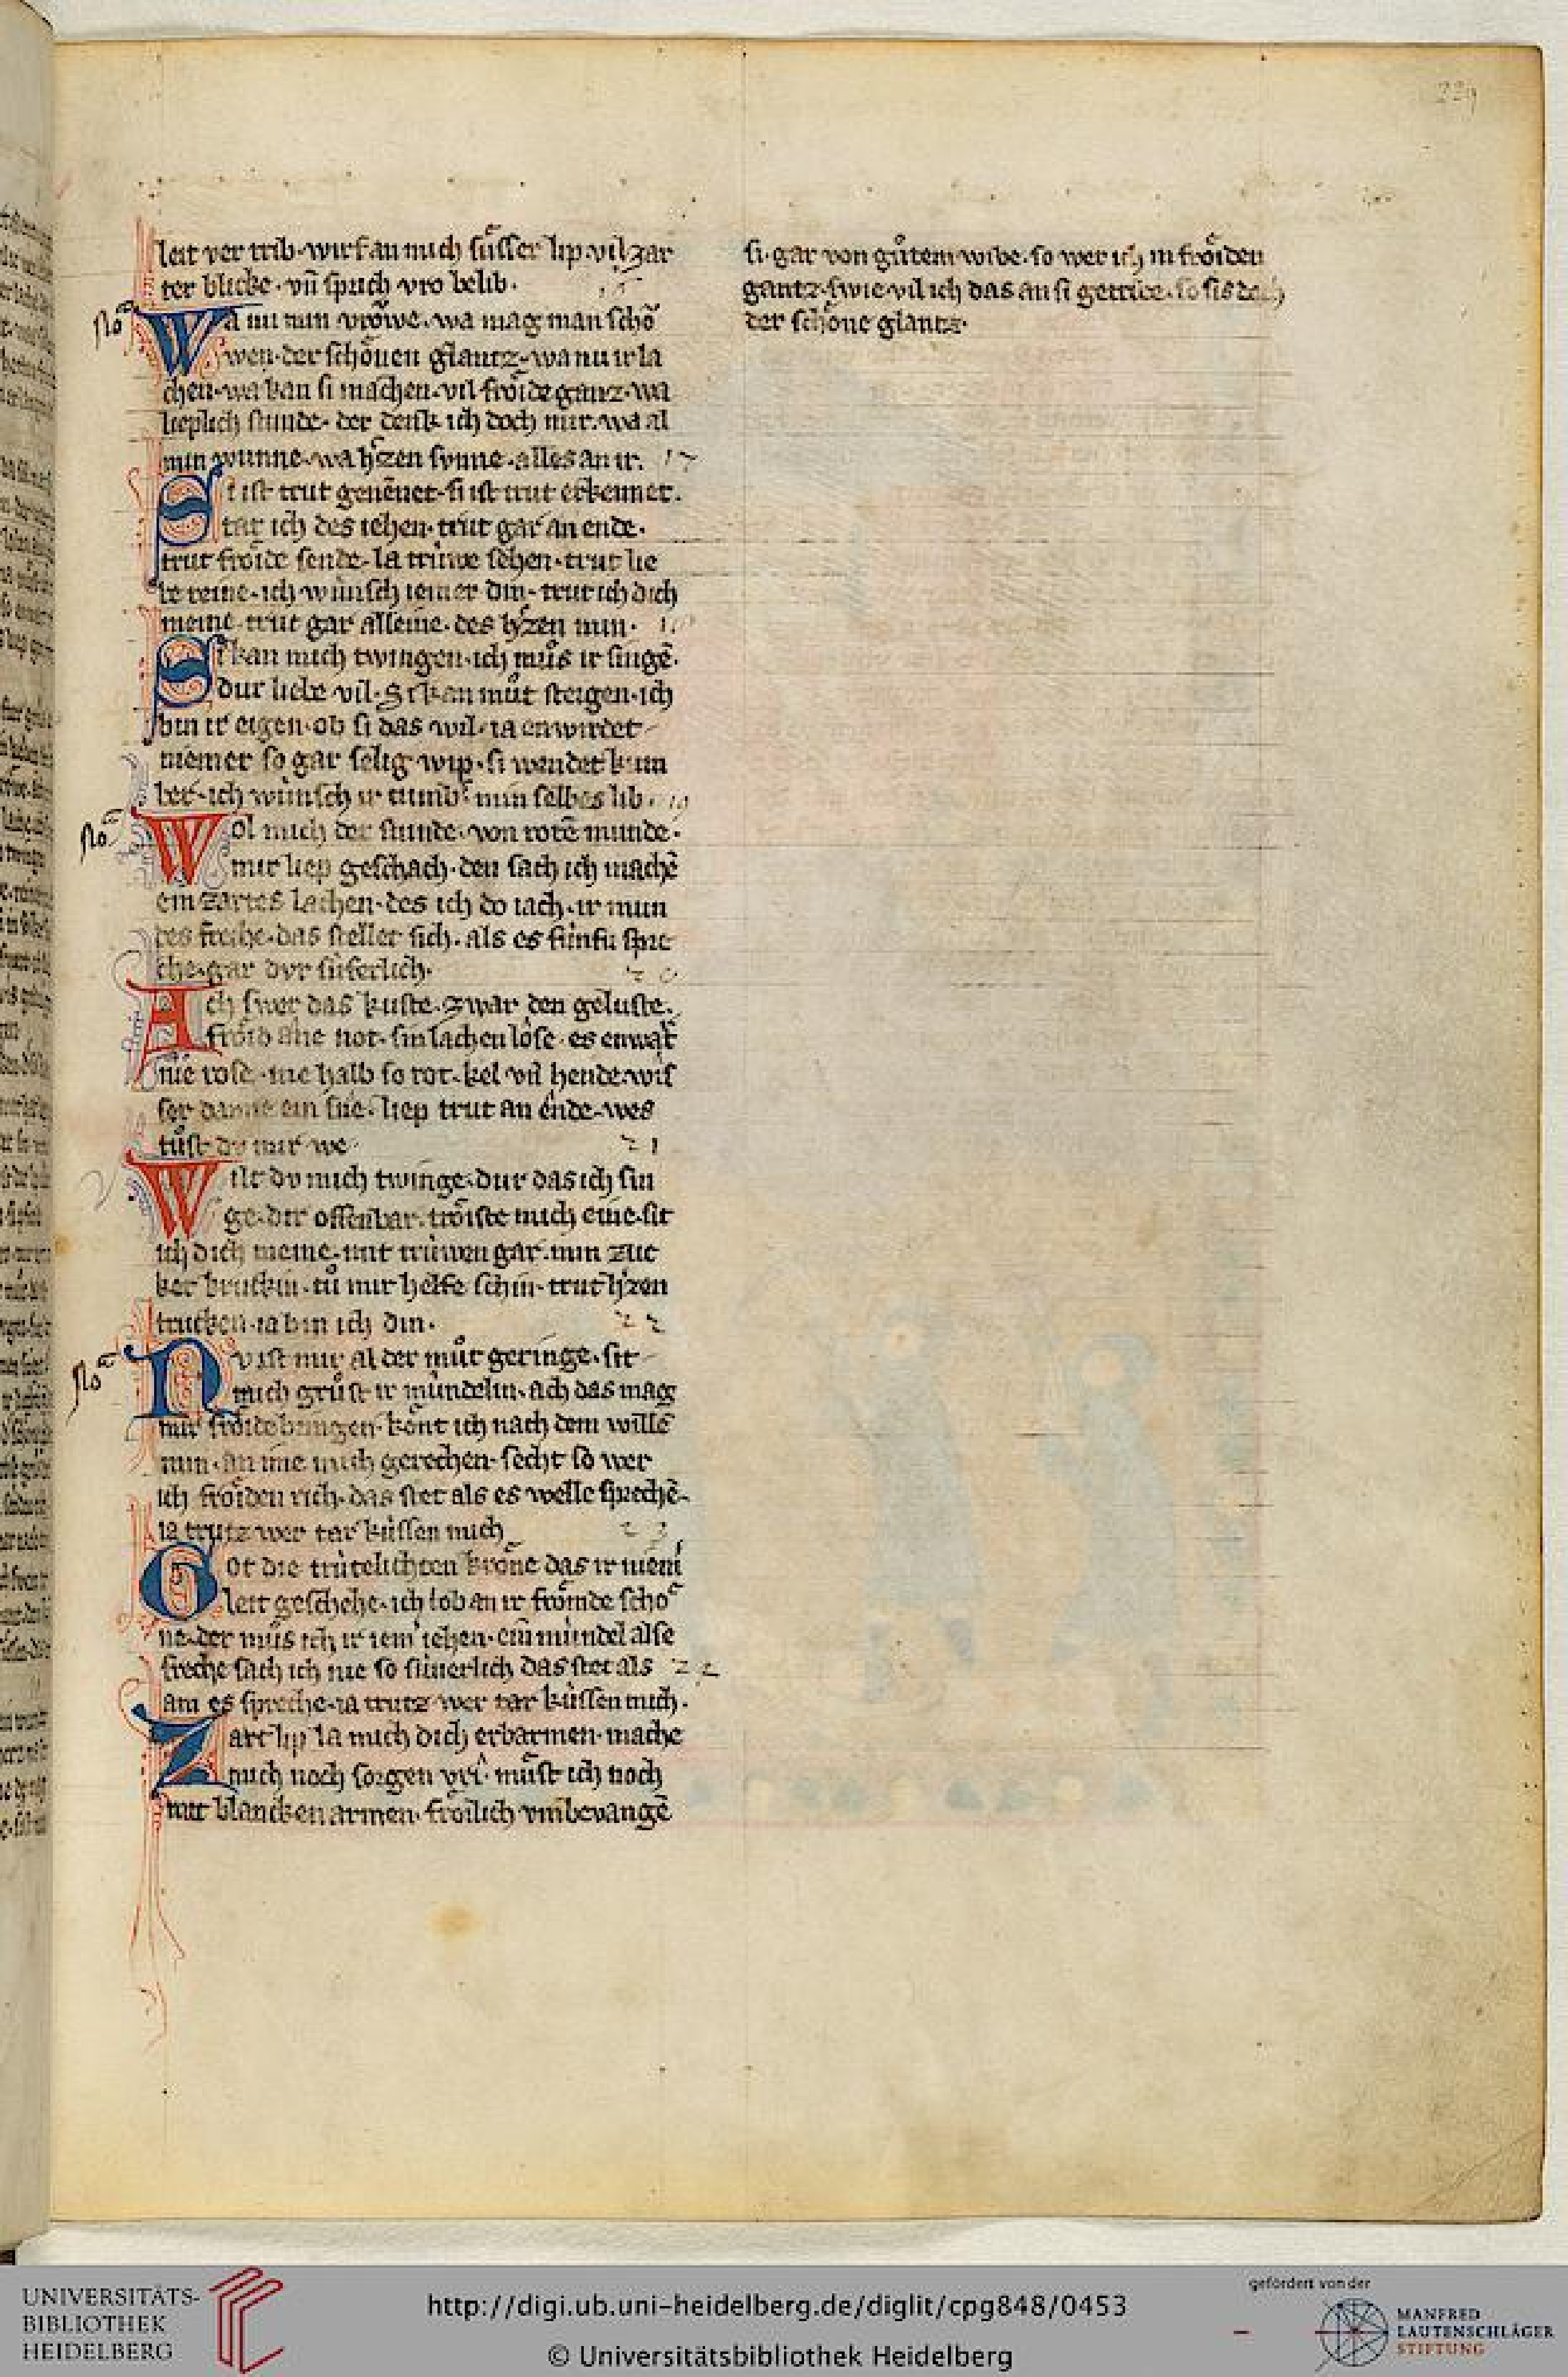 229
leit ver trib·wirf an mich suͤsser lip·vil zar
ter blicke·vn̄ sprich vro belib·
No
Wa nu min vroͮwe·wa mag man schoͮ
wen·der schoͤnen glantz·wa nu ir la
chen·wa kan si machen·vil froͤide ganz·wa
lieplich stunde· der denk ich doch mir·wa al
min wunne·wa h'zen sunne·alles an ir· 17
Si ist trut genēnet·si ist trut erkennet·
tar ich des iehen·trut gar an ende·
trut froͤide sende·la trúwe sehen·trut lie
be reine·ich wúnsch iemer din·trut ich dich
meine·trut gar alleine·des h'zen min·
Si kan mich twingen·ich muͦs ir singē·
dur liebe vil·Si kan muͦt steigen·ich
bin ir eigen·ob si das wil·ia enwirdet
niemer so gar selig wip·si wendet kum
ber·ich wúnsch ir tumb' min selbes lib· 19
No
Wol mich der stunde·von rotē munde·
mir liep geschach·den sach ich machē
ein zartes lachen·des ich do iach·ir mun
des freche·das stellet sich·als es fúnfú spre
che·gar dvr súferlich· 20
Ach swer das kuste·zwar den geluste·
froͤid ane not·sin lachen loͤse·es enwart
nie rose·nie halb so rot·kel vn̄ hende·wis
ser danne ein sne·liep trut an ende·wes
tuͦst dv mir we· 21
Wilt dv mich twinge·dur das ich sin
ge·dir offenbar·troͤiste mich eine·sit
ich dich meine·mit trúwen gar·min zuc
ker bruckin·tuͦ mir helfe schin·trut h'zen
trucken·ia bin ich din· 22
No
Nv ist mir al der muͦt geringe·sit
mich gruͦst ir múndelin·ach das mag
mir froͤide bringen·koͤnt ich nach dem willē
min·an ime mich gerechen·secht so wer
ich froͤiden rich·das stet als es welle sprechē·
ia trutz wer tar kússen mich 23
Got die trútelichten kroͤne das ir niem'
leit geschehe·ich lob an ir froͤmde schoͤ
ne·der muͦs ich ir iem' iehen·ein múndel alse
freche sach ich nie so súuerlich das stet als 24
am es spreche·ia trutz wer tar kússen mich·
Zart lip la mich dich erbarmen·mache
mich noch sorgen vri·muͤst ich noch
mit blancken armen·froͤilich vmbevangē
si·gar von guͦtem wibe·so wer ich in froͤiden
gantz·swie vil ich das an si getribe·so sis doch
der schoͤne glantz·
UNIVERSITÄTS-
BIBLIOTHEK
HEIDELBERG
http://digi.ub.uni-heidelberg.de/diglit/cpg848/0453
© Universitätsbibliothek Heidelberg
gefördert von der
MANFRED
LAUTENSCHLÄGER
STIFTUNG